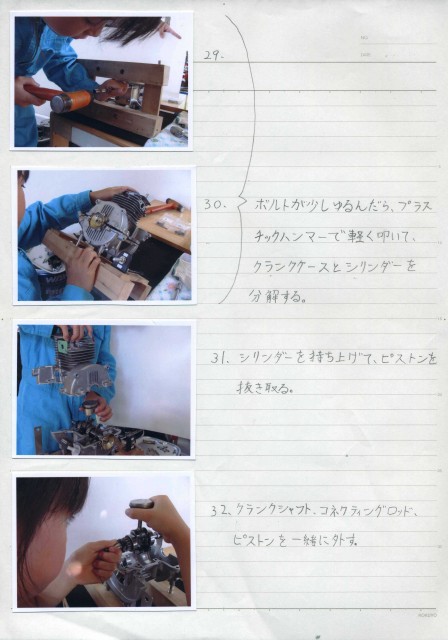 29.
30. ボルトが少しゆるんだら、プラス
チックハンマーで軽く叩いて、
クランクケースとシリンダーを
分解する。
31. シリンダーを持ち上げて、ピストンを
抜き取る。
32. クランクシャフト、コネクティングロッド、
ピストンを一緒に外す。
KOKUYO